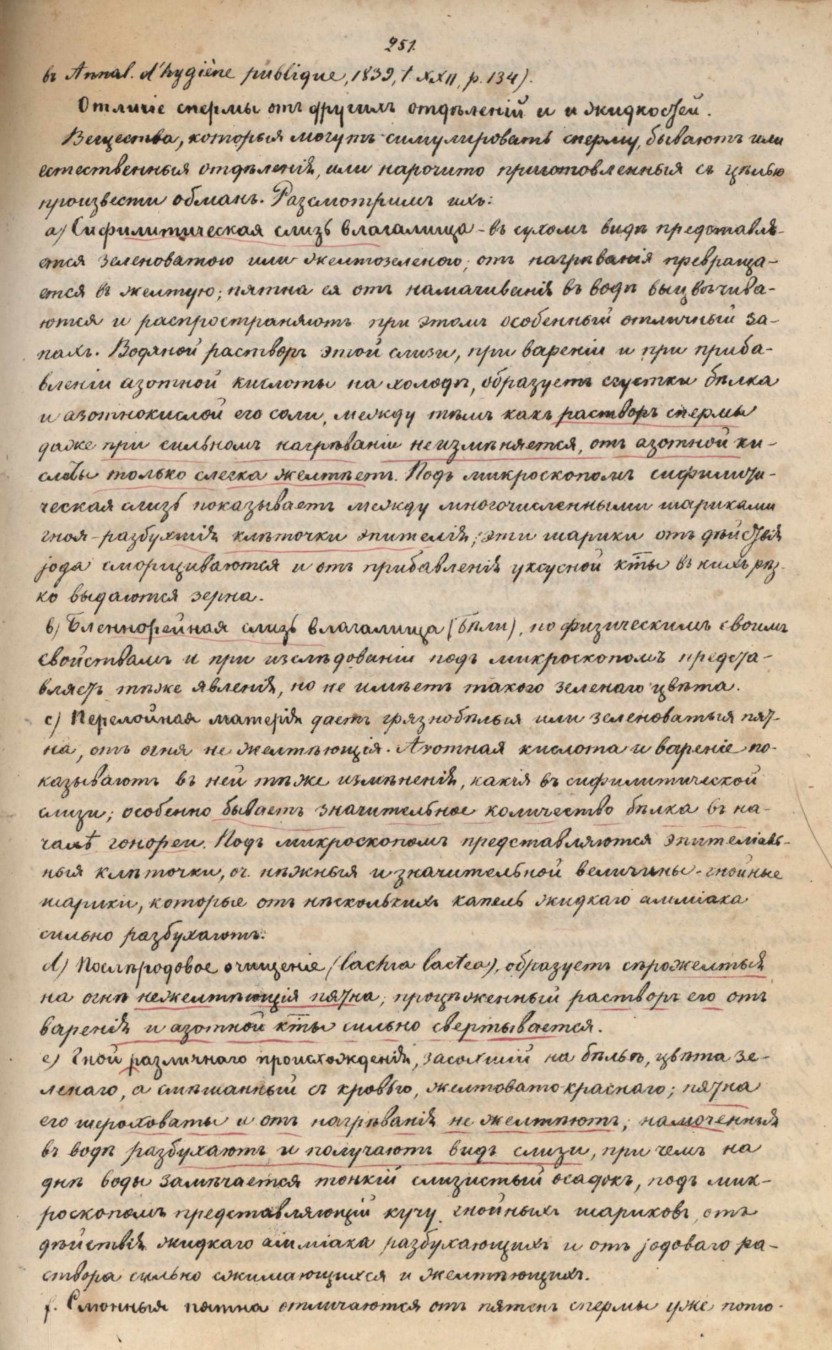 251.
въ Annal. d'hygiène publique, 1839, t XXII, p. 134).
Отличіе спермы отъ другихъ отдѣленій и и жидкостей.
Вещества, которыя могутъ симулировать сперму, бываютъ или
естественныя отдѣленія, или нарочито приготовленныя съ цѣлью
произвести обманъ. Разсмотримъ ихъ:
а) Сифилитическая слизь влагалища - въ сухомъ видѣ представля-
ется зеленоватою или желтозеленою, отъ нагрѣванія превраща-
ется въ желтую; пятна ея отъ намачиванія въ водѣ выцвѣчива-
ются и распространяютъ при этомъ особенный отличный за-
пахъ. Водяной растворъ этой слизи, при вареніи и при приба-
вленіи азотной кислоты на холодѣ, образуетъ сгустки бѣлка
и азотнокислой его соли, между тѣмъ какъ растворъ спермы
даже при сильномъ нагрѣваніи неизмѣняется, отъ азотной ки-
слоты только слегка желтѣетъ. Подъ микроскопомъ сифилити-
ческая слизь показываетъ между многочисленными шариками
гноя - разбухшія клѣточки эпителія; эти шарики отъ дѣйствія
jода сморщиваются и отъ прибавленія уксусной кты въ нихъ рѣз-
ко выдаются зерна.
b) Бленнорейная слизь влагалища (бѣли), по физическимъ своимъ
свойствамъ и при изслѣдованіи подъ микроскопомъ предста-
вляетъ тѣже явленія, но не имѣетъ такого зеленаго цвѣта.
c) Перелойная матерія даетъ грязнобѣлыя или зеленоватыя пят-
на, отъ огня не желтѣющія. Азотная кислота и вареніе по-
казываютъ въ ней тѣже измѣненія, какія въ сифилитической
слизи; особенно бываетъ значительное количество бѣлка въ на-
чалѣ гонореи. Подъ микроскопомъ представляются эпителіаль-
ныя клѣточки, оч. нѣжныя и значительной величины - гнойные
шарики, которые отъ нѣсколькихъ капель жидкаго амміака
сильно разбухаютъ.
d) Послѣродовое очищеніе (lochia lactea), образуетъ сѣрожелтыя
на огнѣ нежелтѣющія пятна, процѣженный растворъ его отъ
варенія и азотной кты сильно свертывается.
e) Гной различнаго происхожденія, засохшій на бѣльѣ, цвѣта зе-
ленаго, а смѣшанный съ кровью, желтоватокраснаго; пятна
его шероховаты и отъ нагрѣванія не желтѣютъ, намоченныя
въ водѣ разбухаютъ и получаютъ видъ слизи, при чемъ на
днѣ воды замѣчается тонкій слизистый осадокъ, подъ мик-
роскопомъ представляющій кучу гнойныхъ шариковъ, отъ
дѣйствія жидкаго амміака разбухающихъ и отъ jодоваго ра-
створа сильно сжимающихся и желтѣющихъ.
f. Слюнныя пятна отличаются отъ пятенъ спермы уже пото-